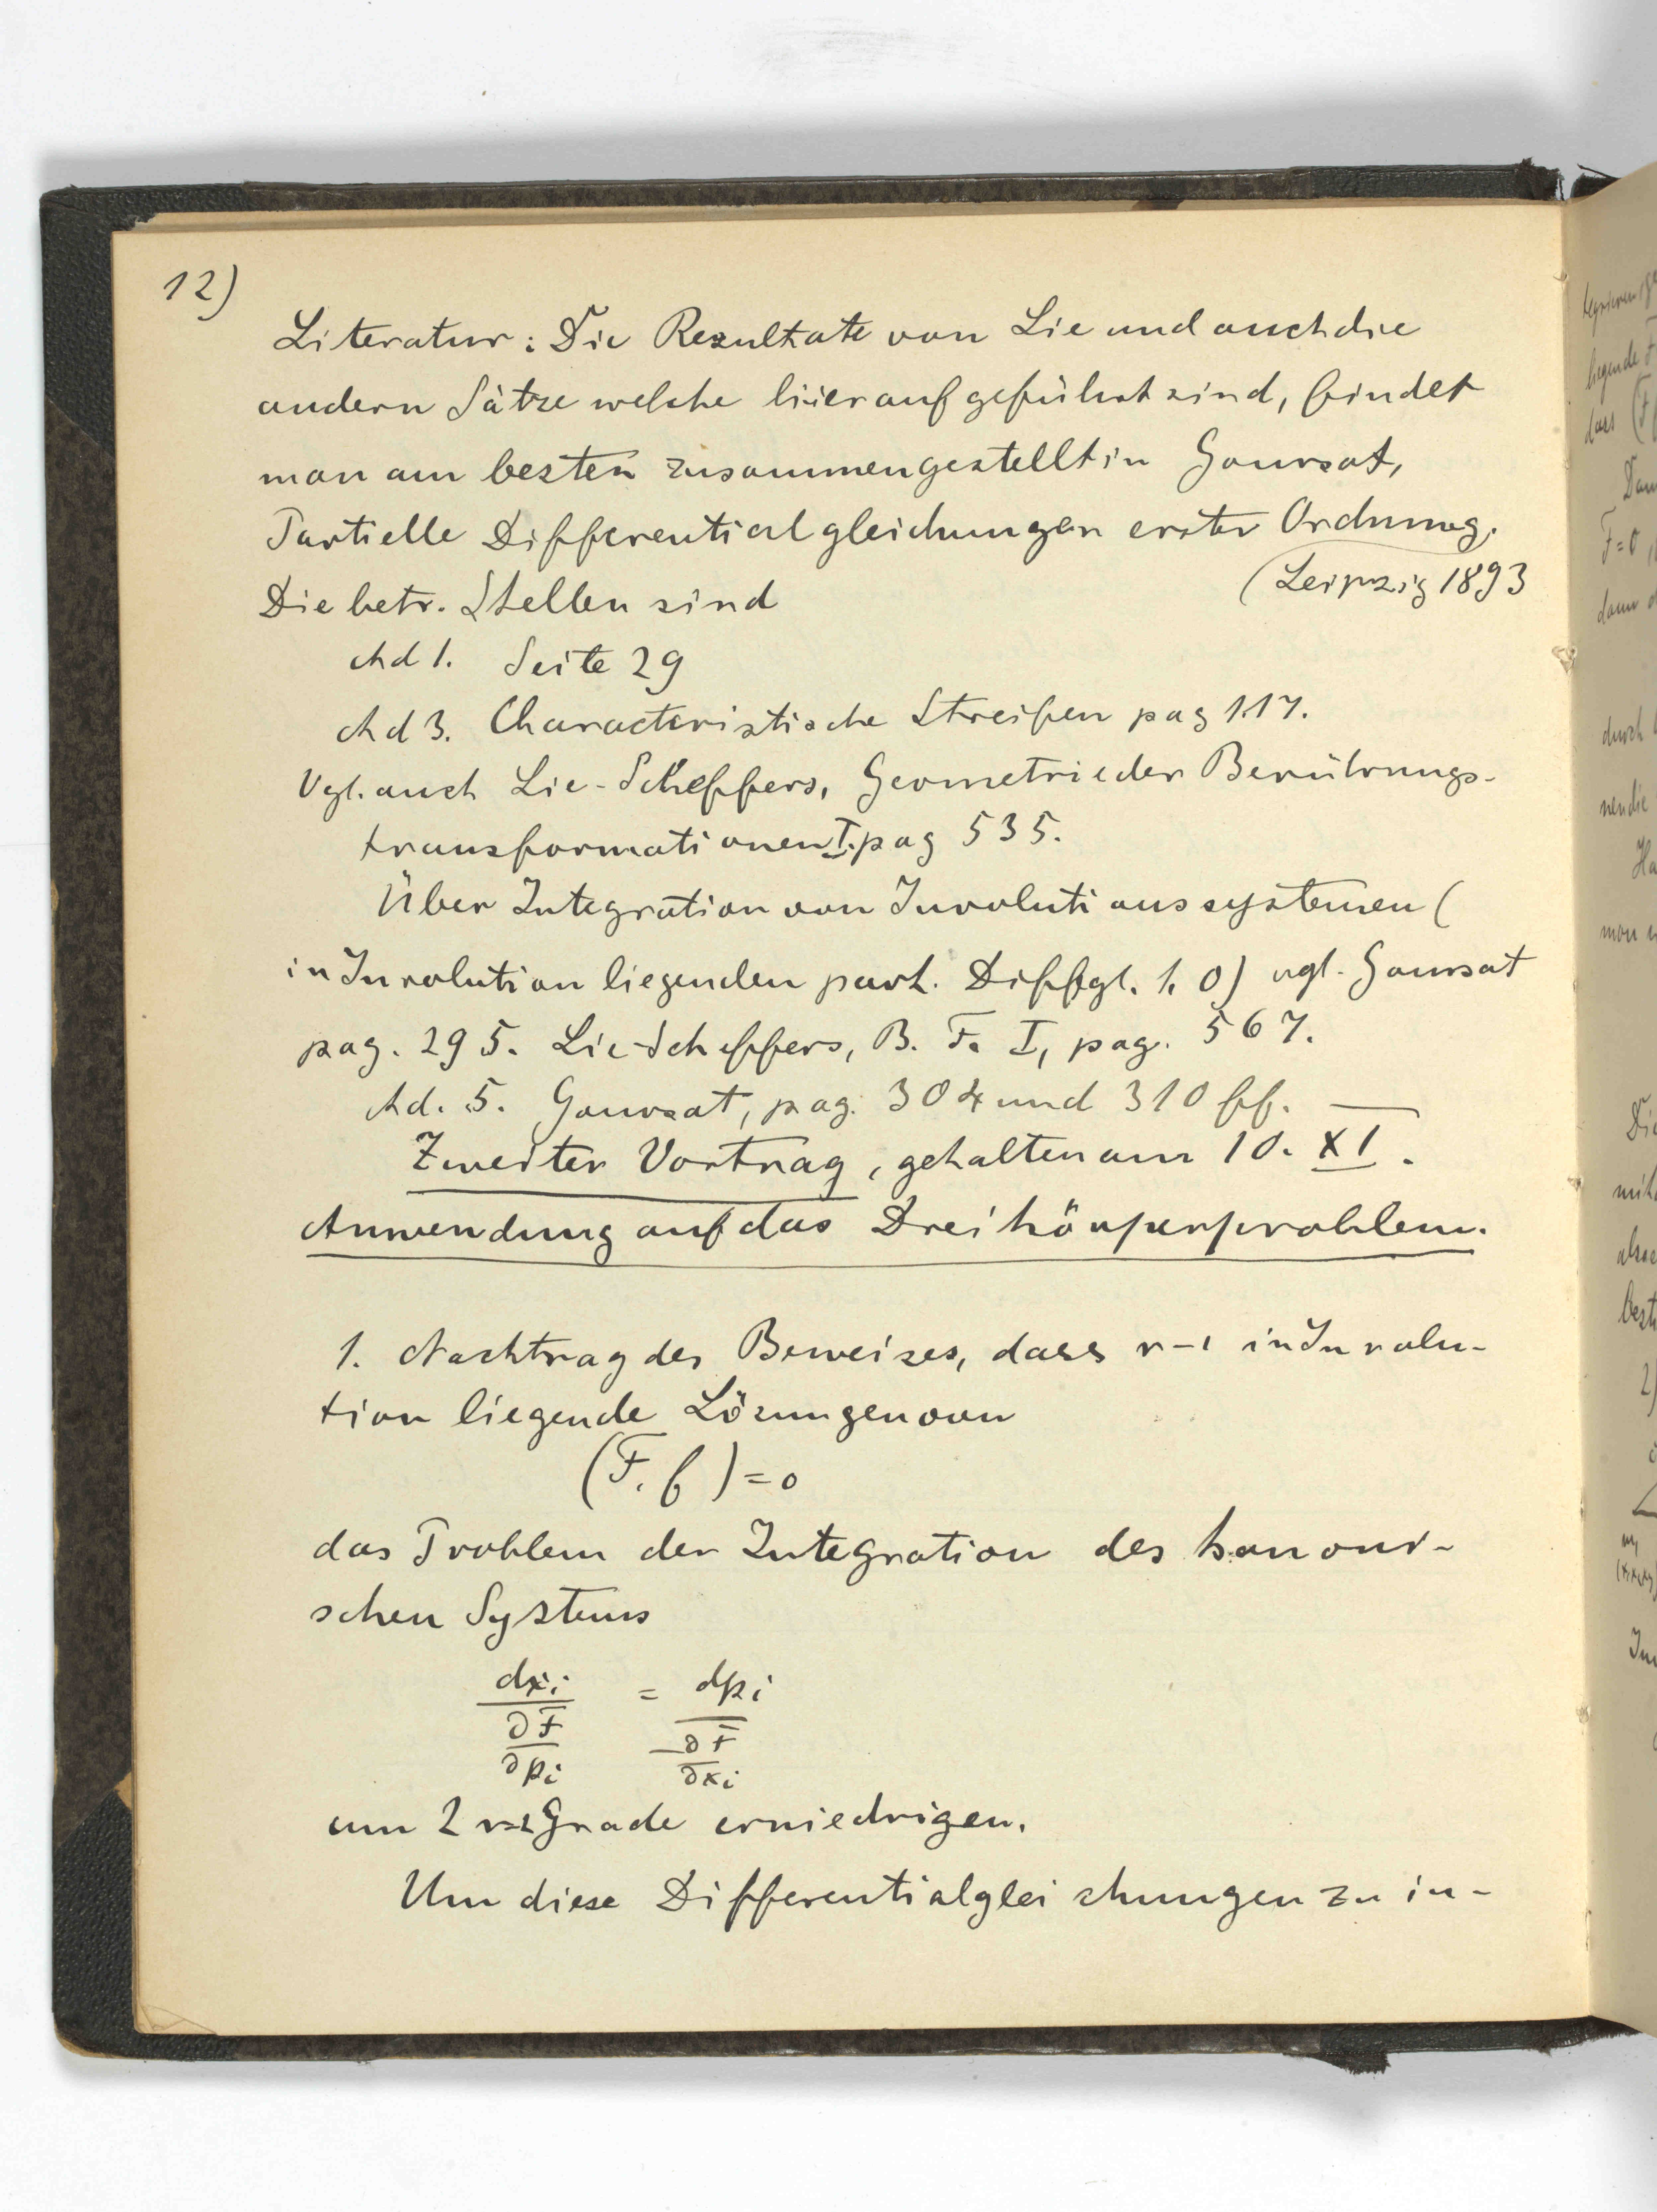 12)
Literatur: Die Resultate von Lie und auch die
andern Sätze welche hier aufgeführt sind, findet
man am besten zusammengestellt in Goursat,
Partielle Differentialgleichungen erster Ordnung.
(Leipzig 1893
Die betr. Stellen sind
Ad 1. Seite 29
Ad 3. Characteristische Streifen pag 117.
Vgl. auch Lie-Scheffers, Geometrie der Berührungs-
transformationen I. pag 535.
Über Integration von Involutionssystemen (
in Involution liegenden part. Diffgl. 1. O) vgl. Goursat
pag. 295. Lie-Scheffers, B. T. I, pag. 567.
Ad. 5. Goursat, pag. 304 und 310 ff. —
Zweiter Vortrag, gehalten am 10. XI.
Anwendung auf das Dreikörperproblem.
1. Nachtrag des Beweises, dass r-1 in Involu-
tion liegende Lösungen von
(F, f) = 0
das Problem der Integration des kanoni-
schen Systems
dxi = dpi
∂F
∂pi
-∂F
∂xi
um 2r-2 Grade erniedrigen.
Um diese Differentialgleichungen zu in-